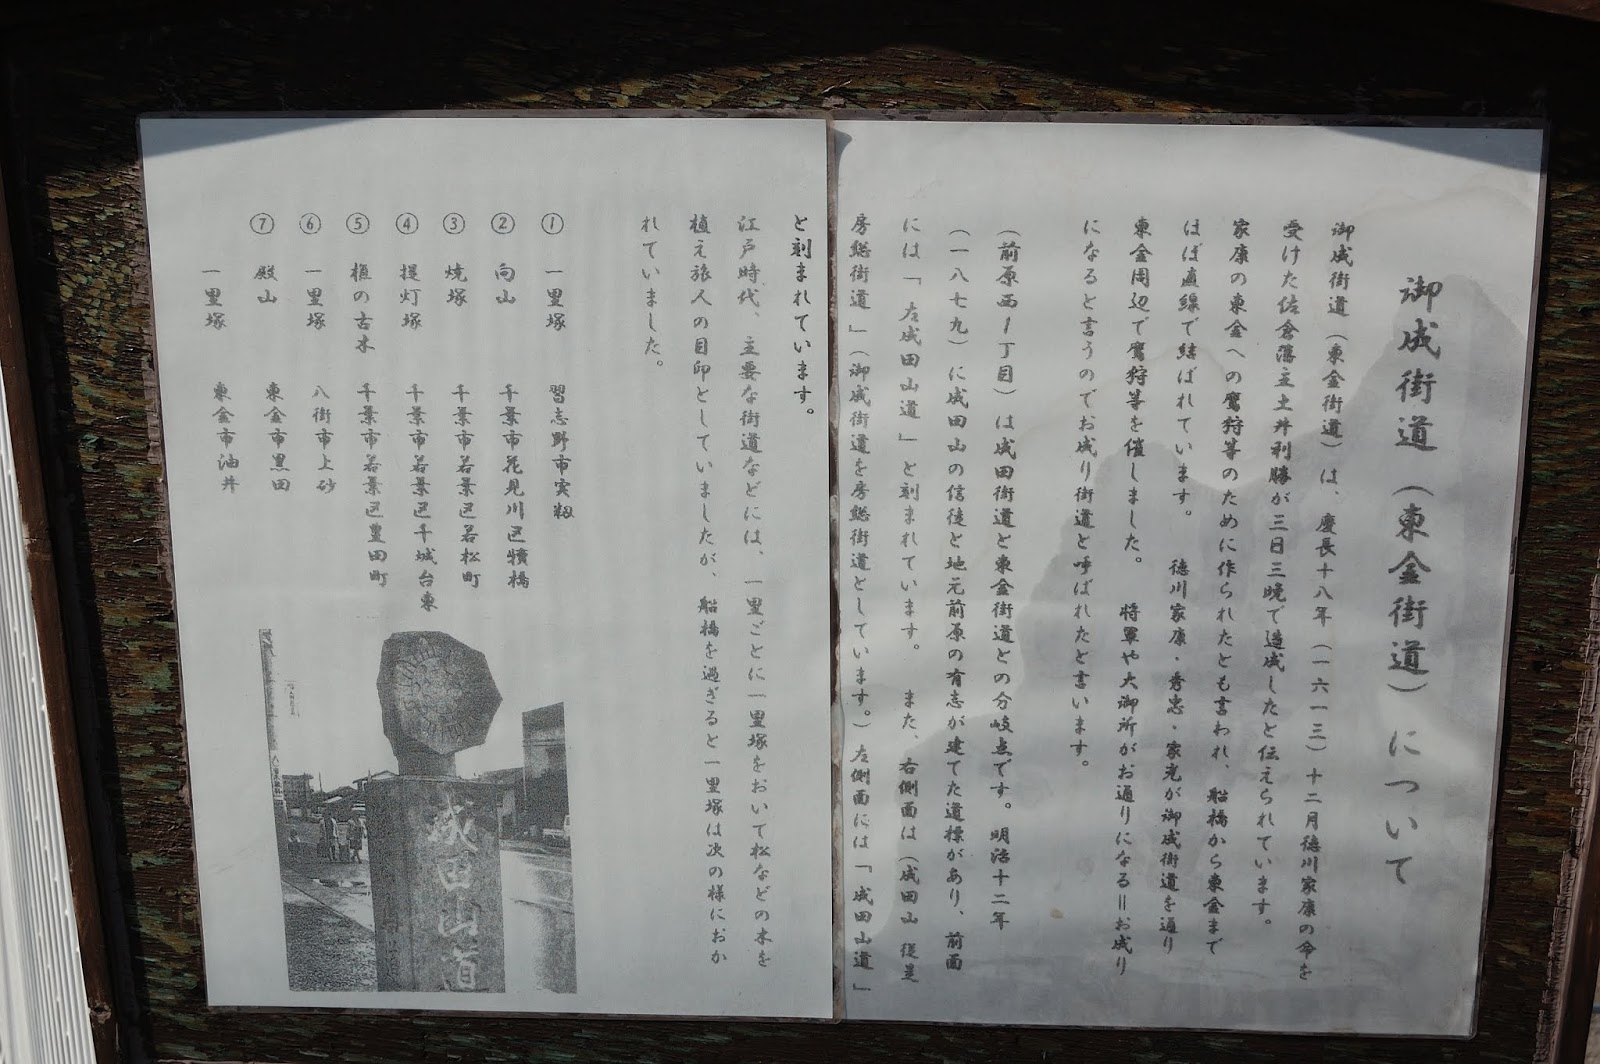 御成街道（東金街道）について
御成街道（東金街道）は、慶長十八年（一六一三）十二月徳川家康の命を
受けた佐倉藩主土井利勝が三日三晩で造成したと伝えられています。
家康の東金への鷹狩等のために作られたとも言われ、船橋から東金まで
ほぼ直線で結ばれています。　徳川家康・秀忠・家光が御成街道を通り
東金周辺で鷹狩等を催しました。　将軍や大御所がお通りになる＝お成り
になると言うのでお成り街道と呼ばれたと言います。
（前原西１丁目）は成田街道と東金街道との分岐点です。明治十二年
（一八七九）に成田山の信徒と地元前原の有志が建てた道標があり、前面
には「左成田山道」と刻まれています。　また、右側面は（成田山　従是
房総街道」（御成街道を房総街道としています。）左側面には「成田山道」
と刻まれています。
江戸時代、主要な街道などには、一里ごとに一里塚をおいて松などの木を
植え旅人の目印としていましたが、船橋を過ぎると一里塚は次の様におか
れていました。
①　一里塚　習志野市実籾
②　向山　千葉市花見川区犢橋
③　焼塚　千葉市若葉区若松町
④　提灯塚　千葉市若葉区千城台東
⑤　榎の古木　千葉市若葉区豊田町
⑥　一里塚　八街市上砂
⑦　殿山　東金市黒田
一里塚　東金市油井
成田山道